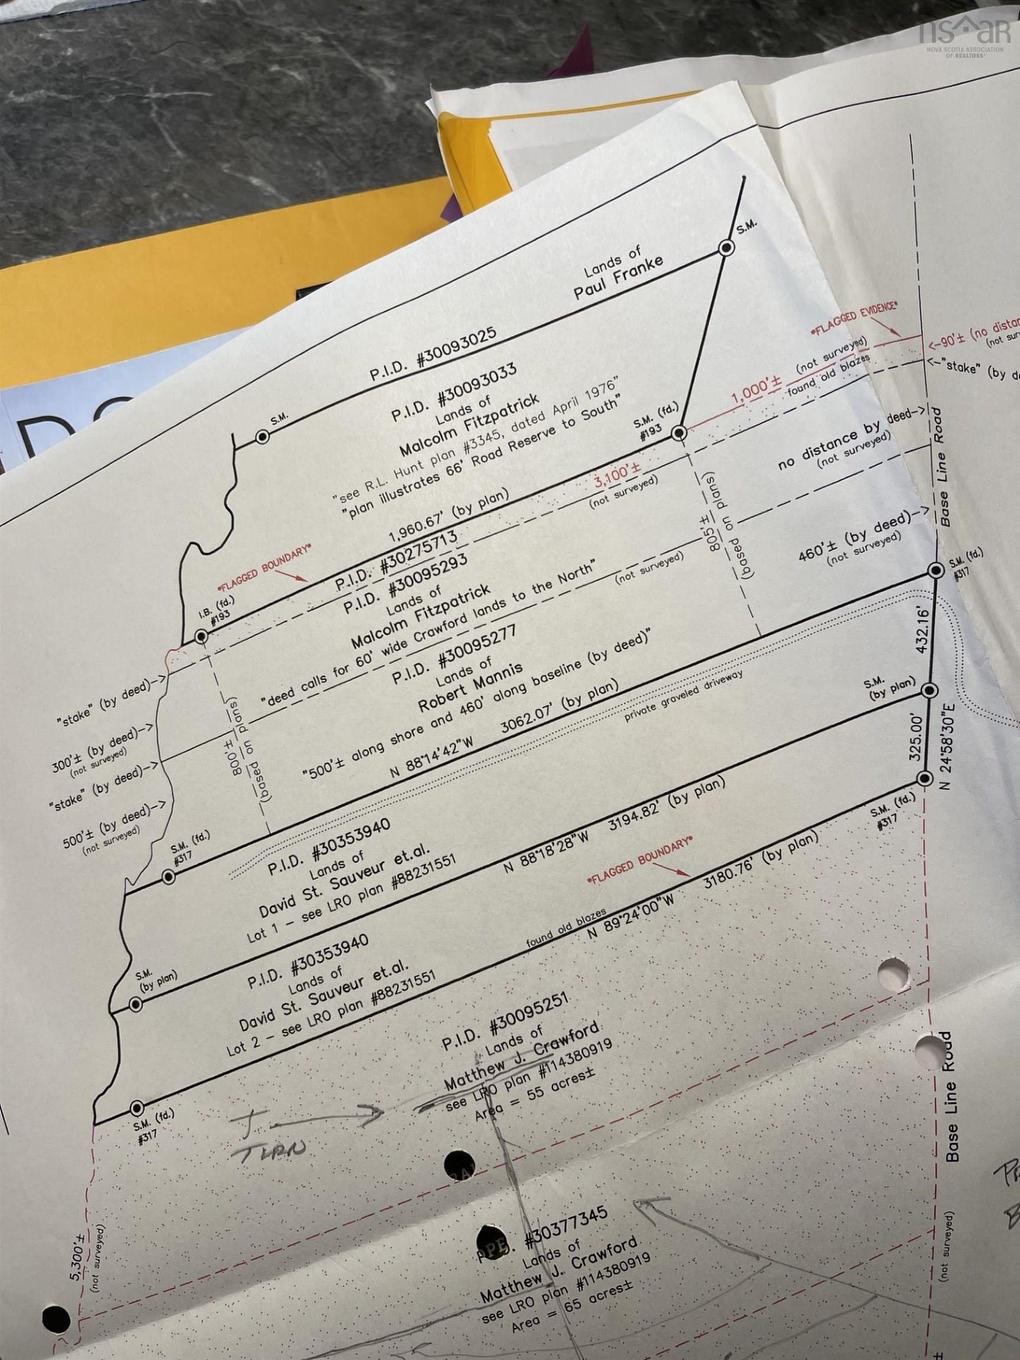 nsaar
NOVA SCOTIA ASSOCIATION
OF REALTORS®
Lands of
Paul Franke
S.M.
P.I.D. #30093025
S.M.
P.I.D. #30093033
Lands of
Malcolm Fitzpatrick
"see R.L. Hunt plan #3345, dated April 1976"
"plan illustrates 66' Road Reserve to South"
*FLAGGED EVIDENCE*
<-90'± (no distan
(not sur
<-"stake" (by de
1,000'±
(not surveyed)
found old blazes
S.M. (fd.)
#193
1,960.67' (by plan)
3,100'±
(not surveyed)
no distance by deed->
(not surveyed)
Base Line Road
*FLAGGED BOUNDARY*
I.B. (fd.)
#193
P.I.D. #30275713
P.I.D. #30095293
Lands of
Malcolm Fitzpatrick
"deed calls for 60' wide Crawford lands to the North"
(not surveyed)
805'±
(based on plans)
460'± (by deed)->
(not surveyed)
S.M. (fd.)
#317
P.I.D. #30095277
Lands of
Robert Mannis
"500'± along shore and 460' along baseline (by deed)"
"stake" (by deed)->
300'± (by deed)->
(not surveyed)
"stake" (by deed)->
500'± (by deed)->
(not surveyed)
800'±
(based on plans)
N 88°14'42"W
3062.07' (by plan)
private graveled driveway
432.16'
S.M.
(by plan)
325.00'
N 24°58'30"E
S.M. (fd.)
#317
P.I.D. #30353940
Lands of
David St. Sauveur et.al.
Lot 1 - see LRO plan #88231551
N 88°18'28"W
3194.82' (by plan)
*FLAGGED BOUNDARY*
3180.76' (by plan)
S.M. (fd.)
#317
S.M.
(by plan)
P.I.D. #30353940
Lands of
David St. Sauveur et.al.
Lot 2 - see LRO plan #88231551
found old blazes
N 89°24'00"W
S.M. (fd.)
#317
P.I.D. #30095251
Lands of
Matthew J. Crawford
see LRO plan #114380919
Area = 55 acres±
Base Line Road
5,300'±
(not surveyed)
#30377345
Lands of
Matthew J. Crawford
see LRO plan #114380919
Area = 65 acres±
(not surveyed)